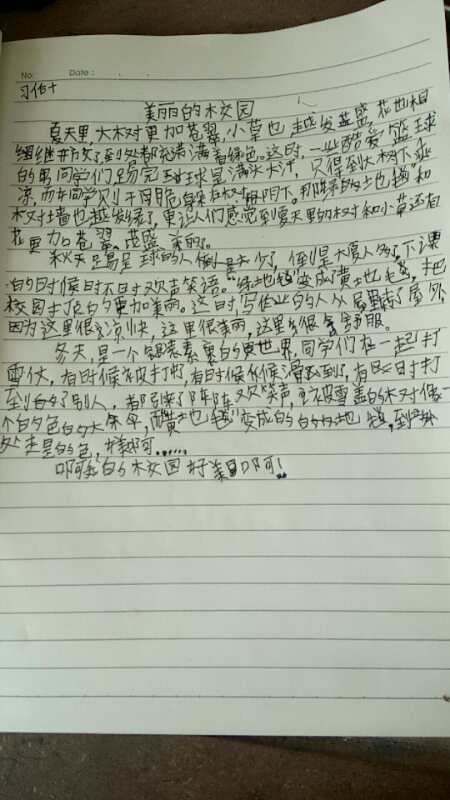 No:
Date:
习作十
美丽的校园
夏天里大树更加苍翠,小草也越发茂盛,花也相
继开放了到各都充满着绿色。这时,一些酷爱篮球
的男同学们踢完球球是满头大汗,只得到大树下乘
凉,而女同学则干脆躲在树阴下。那
树墙也越发绿了,更让人们感觉到夏天里的树和小草还有
花更加苍翠、茂盛、美丽了。
秋天踢足球的人倒是少了,下课
的时候时不时欢声笑语。"绿地毯"变成了黄地毯,把
校园打扮的更加美丽。这时,写作业的人从屋里转了屋外,
因为这里很凉快,这里很美丽,这里很舒服。
冬天,是一个银装素裹的世界,同学们在一起打
雪仗,有时候被打,有时候滑到了,有时打
到了别人,都引来了阵阵欢笑声,被雪盖的树像一
个白色的大伞,"黄地毯"变成的白地毯,到处
处是白色,美啊……
啊!我的校园好美啊!